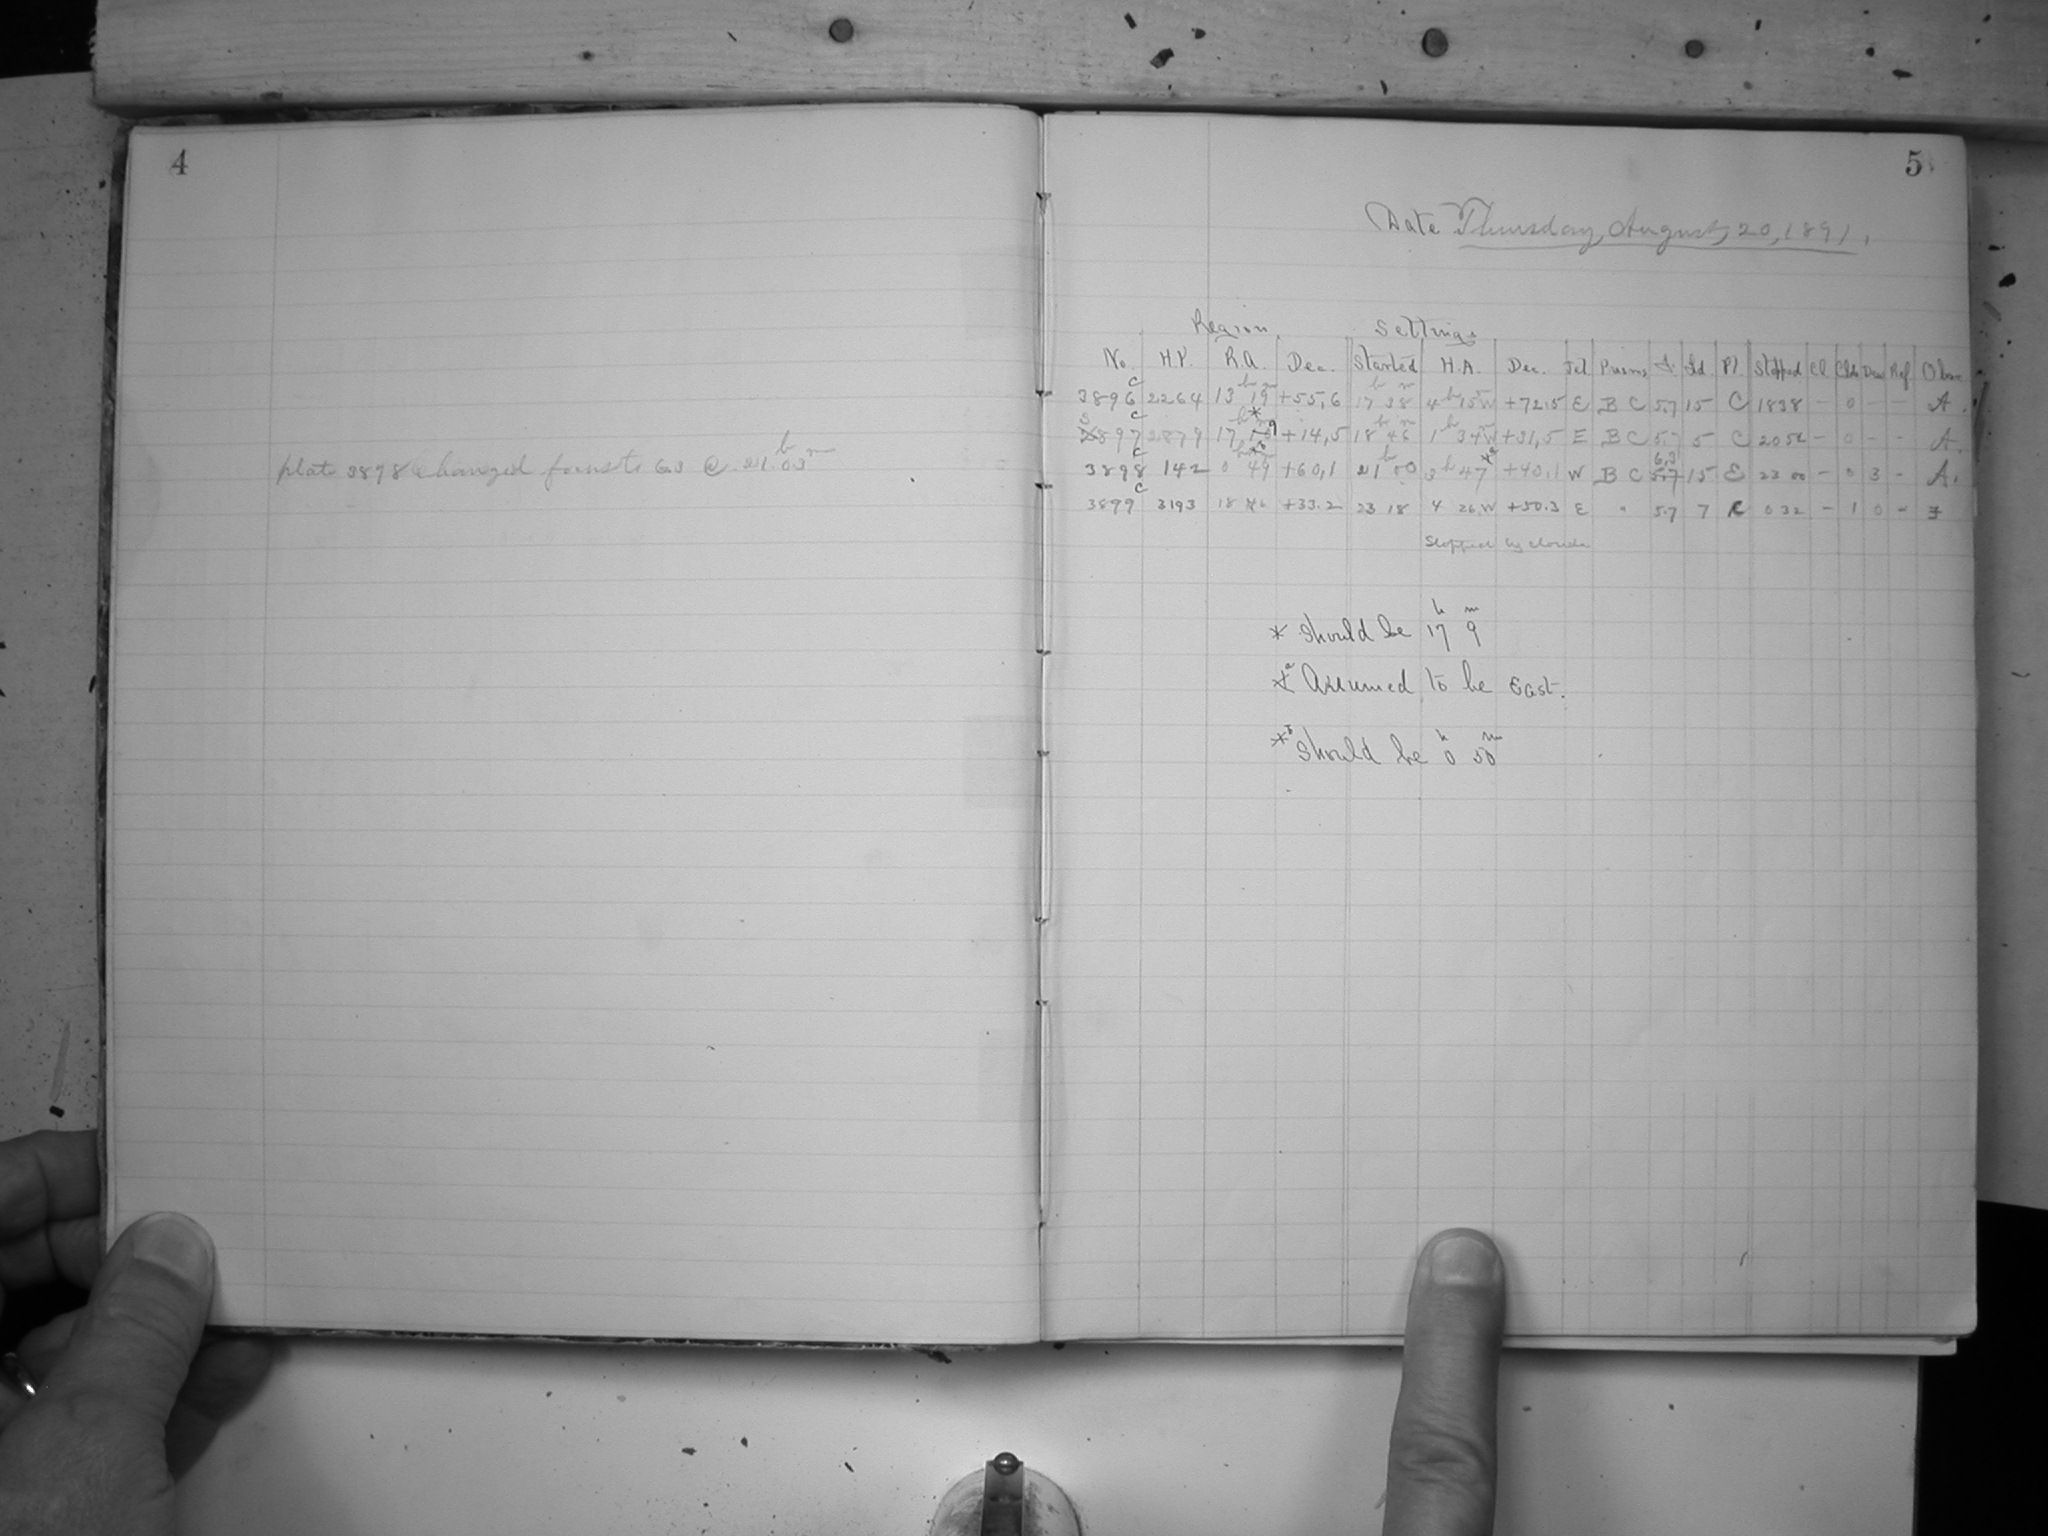 4
plate 3898 changed focus to 6.3 @ 21h 03m
5
Date Thursday, August, 20, 1891.
Region Settings
No. H.P. R.A. Dec. Started H.A. Dec. Tel Prisms F. Sd. Pl. Stopped Cl Clds Dew Ref Obser
3896 C 2264 13h 19m +55,6 17h 38m 4h 15m W +72.5 E B C 5.7 15 C 1838 - 0 - - A.
897 C 2879 17h +14,5 18h 46m 1h 34m W +31,5 E B C 5.7 5 C - 0 - - A
3898 C 142 0h 49m +60,1 21h 00 3h 47m *a +40.1 W B C 6,3 5.7 15 E 23 00 - 0 3 - A.
3899 C 3193 18 46 +33.2 23 18 4 26.W +50.3 E " 5.7 7 C 0 32 - 1 0 -
Stopped by clouds
* Should be 17h 9m
*a Assumed to be East.
*b Should be 0h 50m